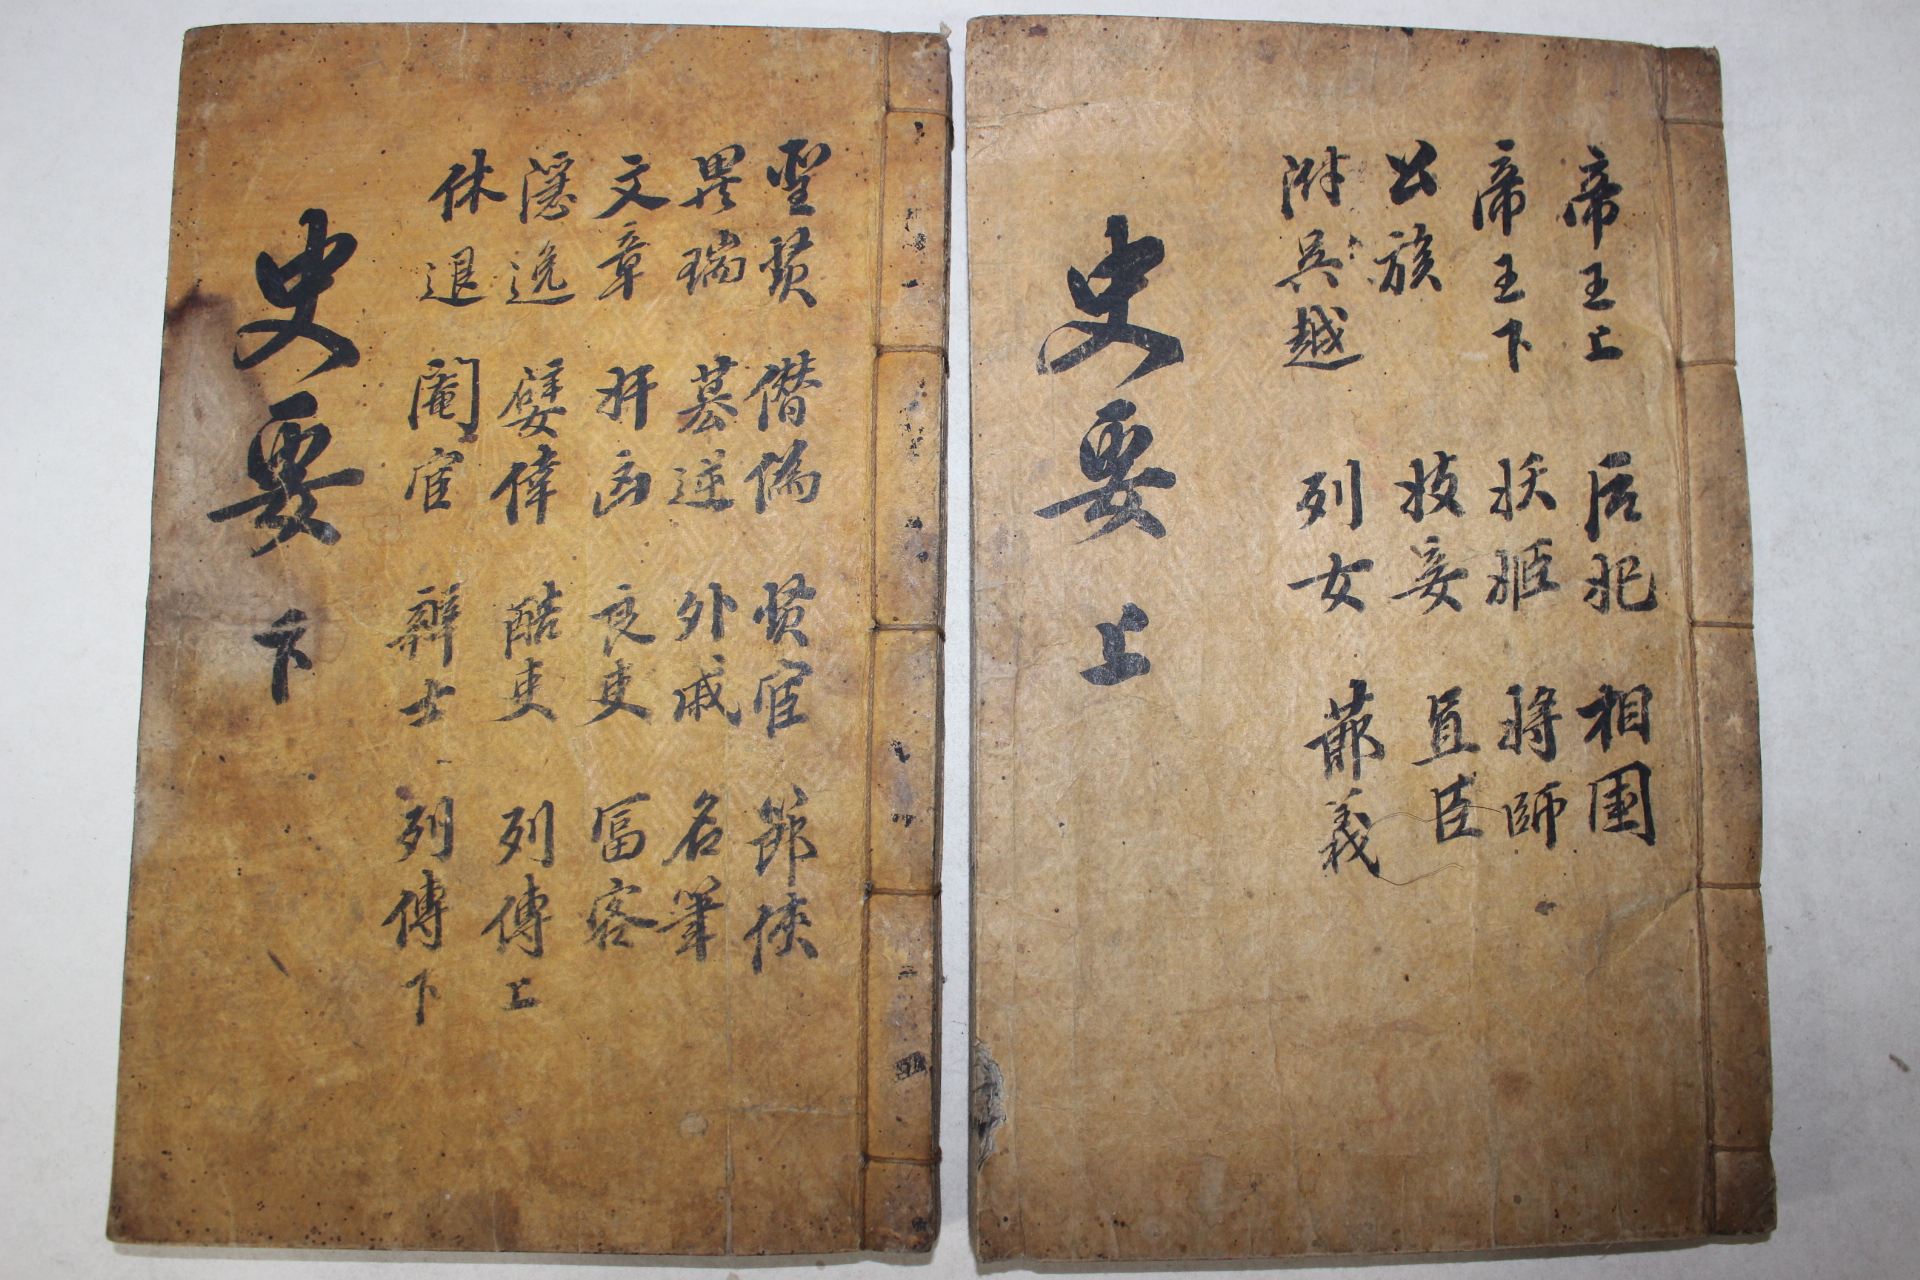 帝王上 后妃 相国
帝王下 妖姬 将師
公族 妓妾 直臣
附吳越 列女 節義
史要 上
聖賢 僭偽 賢宦 節俠
異瑞 墓逆 外戚 名筆
文章 奸凶 良吏 富客
隱逸 嬖倖 酷吏 列傳上
休退 閹宦 辨士 列傳下
史要 下